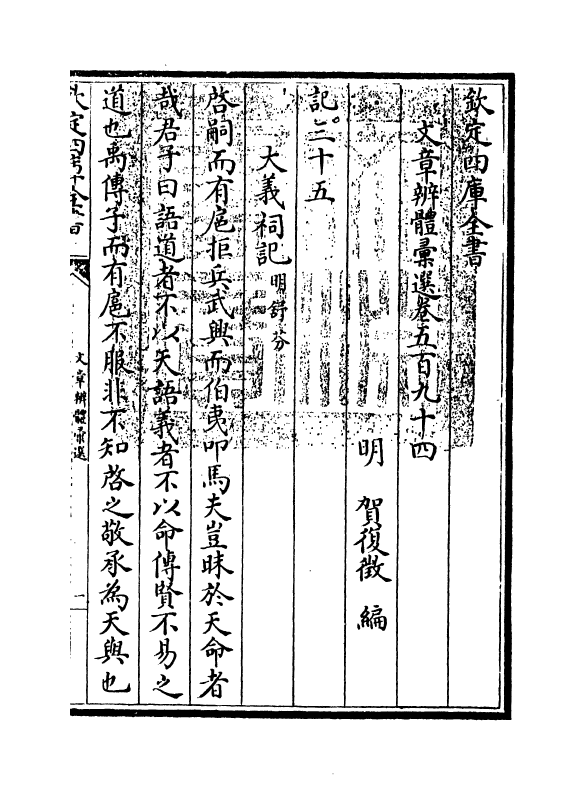 欽定四庫全書
文章辨體彙選卷五百九十四
明 賀復徵 編
記三十五
大義祠記 明舒芬
啓嗣而有扈拒兵武興而伯夷叩馬夫豈昧於天命者
哉君子曰語道者不以天語義者不以命傳賢不易之
道也禹傳子而有扈不服非不知啓之敬承為天與也
欽定四庫全書
文章辨體彙選
一